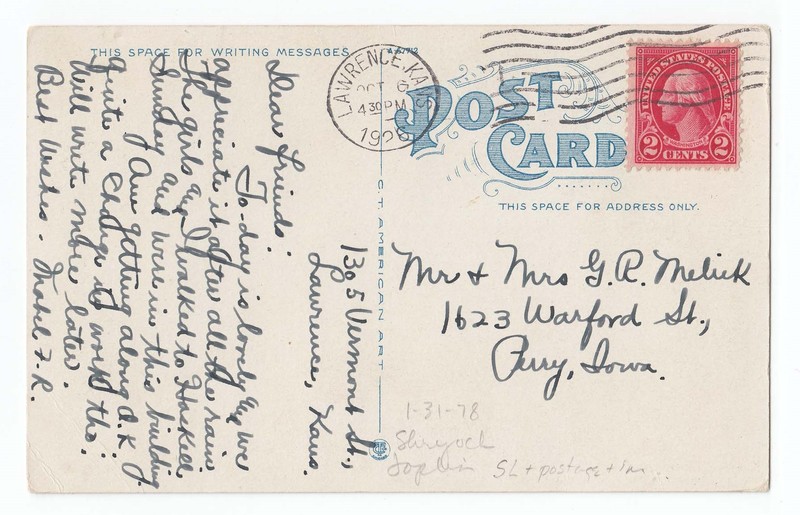 THIS SPACE FOR WRITING MESSAGES
LAWRENCE, KANS
OCT 6
4 30 PM
1926
POST
CARD
UNITED STATES POSTAGE
WASHINGTON
2 CENTS 2
THIS SPACE FOR ADDRESS ONLY.
C.T. AMERICAN ART
1305 Vermont St.,
Lawrence, Kans.
Dear friends:
To-day is lovely and we
appreciate it after all the rain
The girls and I walked to Haskell
Sunday and were in this building
I am getting along O.K.
Quite a change to work tho.
Will write more later.
Best Wishes - Mabel F. R.
Mr & Mrs G. R. Melick
1623 Warford St.,
Perry, Iowa.
1-31-78
Shryock
Joplin
SL + postage + in